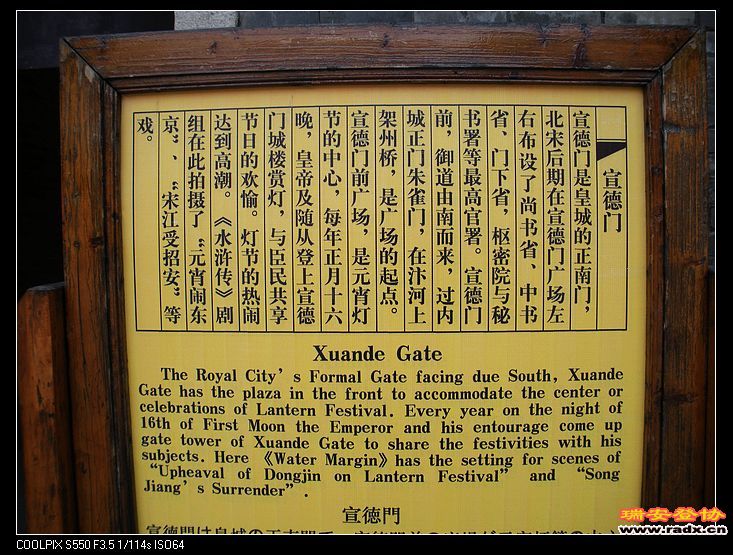 宣德门
宣德门是皇城的正南门，
北宋后期在宣德门广场左
右布设了尚书省、中书
省、门下省，枢密院与秘
书署等最高官署。宣德门
前，御道由南而来，过内
城正门朱雀门，在汴河上
架州桥，是广场的起点。
宣德门前广场，是元宵灯
节的中心，每年正月十六
晚，皇帝及随从登上宣德
门城楼赏灯，与臣民共享
节日的欢愉。灯节的热闹
达到高潮。《水浒传》剧
组在此拍摄了“元宵闹东
京”、“宋江受招安”等
戏。
Xuande Gate
The Royal City's Formal Gate facing due South, Xuande
Gate has the plaza in the front to accommodate the center or
celebrations of Lantern Festival. Every year on the night of
16th of First Moon the Emperor and his entourage come up
gate tower of Xuande Gate to share the festivities with his
subjects. Here 《Water Margin》has the setting for scenes of
“Upheaval of Dongjin on Lantern Festival” and “Song
Jiang's Surrender”.
宣德門
瑞安登协
www.radx.cn
COOLPIX S550 F3.5 1/114s ISO64